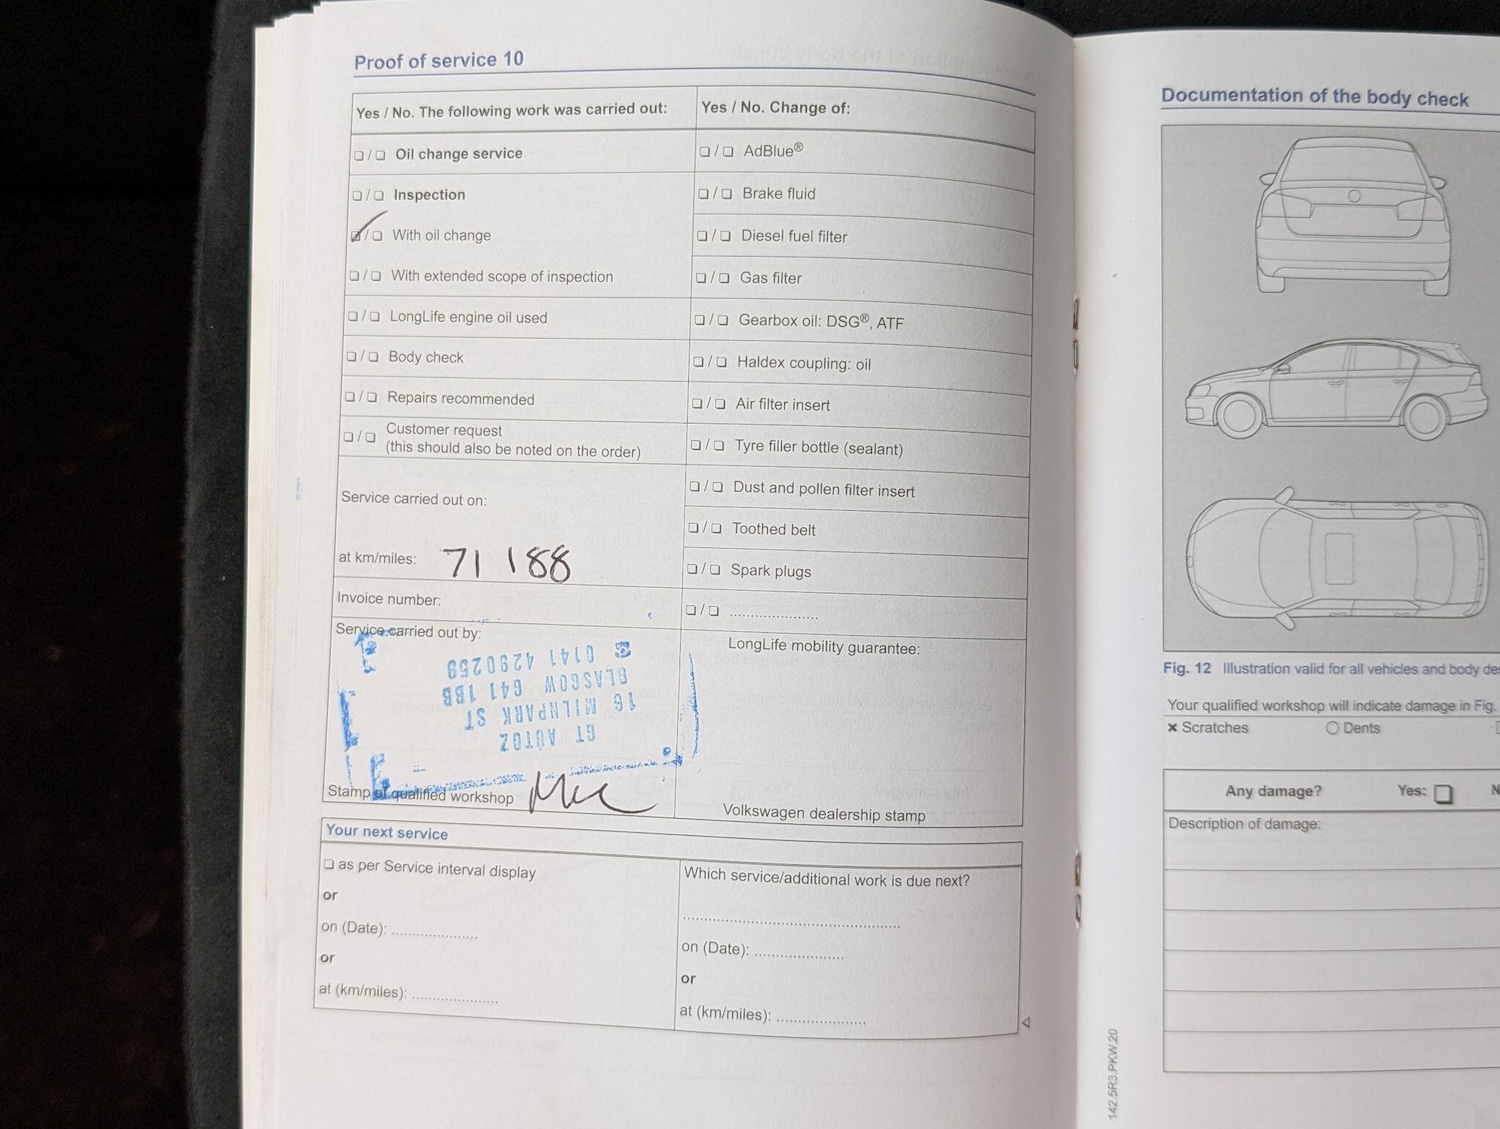 Proof of service 10
Yes / No. The following work was carried out:
Oil change service
Inspection
With oil change
With extended scope of inspection
LongLife engine oil used
Body check
Repairs recommended
Customer request
(this should also be noted on the order)
Service carried out on:
at km/miles: 71 188
Invoice number:
Service carried out by:
GT AUTOZ
16 MILNPARK ST
GLASGOW G41 1BB
0141 4290259
Stamp of qualified workshop
Yes / No. Change of:
AdBlue®
Brake fluid
Diesel fuel filter
Gas filter
Gearbox oil: DSG®, ATF
Haldex coupling: oil
Air filter insert
Tyre filler bottle (sealant)
Dust and pollen filter insert
Toothed belt
Spark plugs
LongLife mobility guarantee:
Volkswagen dealership stamp
Your next service
as per Service interval display
or
on (Date):
or
at (km/miles):
Which service/additional work is due next?
on (Date):
or
at (km/miles):
Documentation of the body check
Fig. 12 Illustration valid for all vehicles and body
Your qualified workshop will indicate damage in Fig.
Scratches
Dents
Any damage? Yes:
Description of damage:
142.5R3.PKW.20